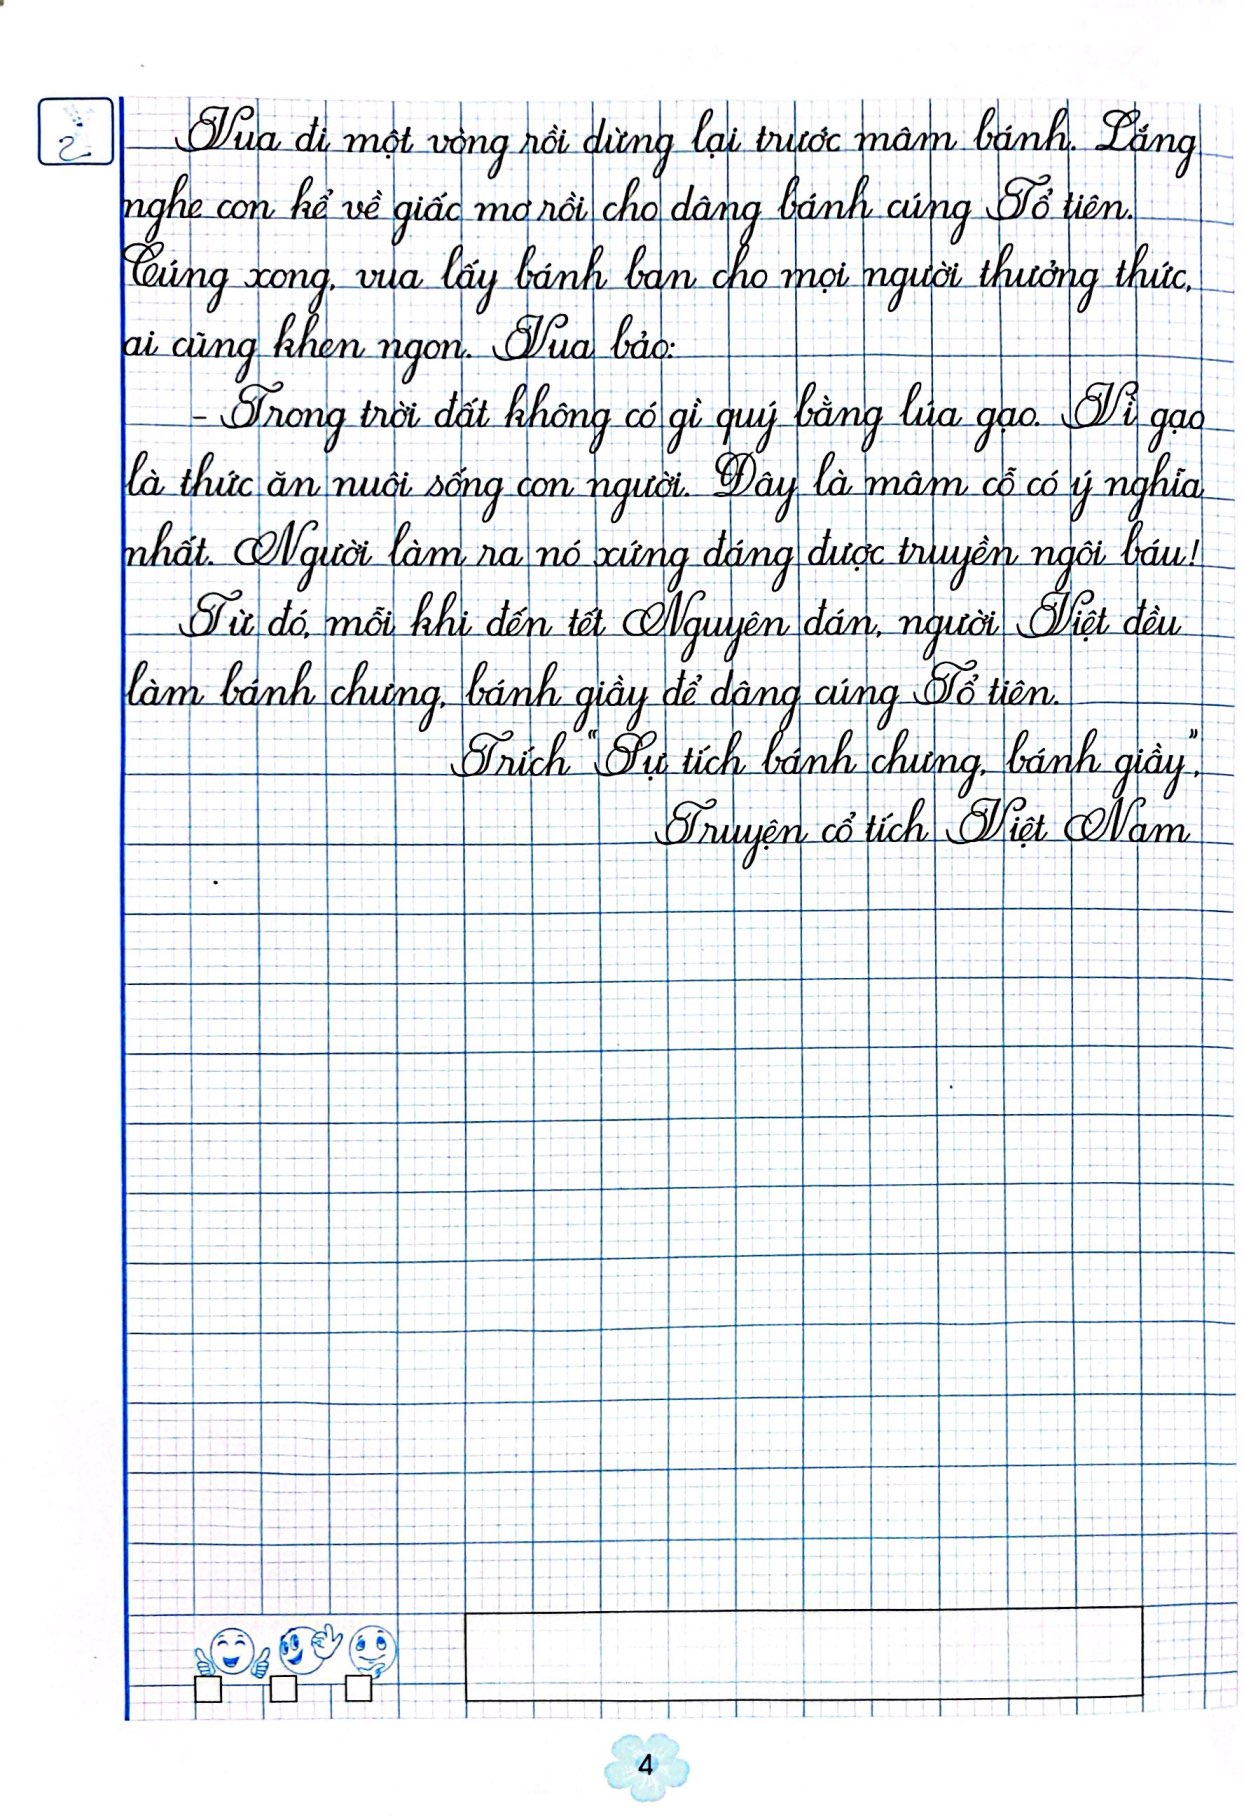 Vua đi một vòng rồi dừng lại trước mâm bánh. Lắng
nghe con kể về giấc mơ rồi cho dâng bánh cúng Tổ tiên.
Cúng xong, vua lấy bánh ban cho mọi người thưởng thức,
ai cũng khen ngon. Vua bảo:
- Trong trời đất không có gì quý bằng lúa gạo. Vì gạo
là thức ăn nuôi sống con người. Đây là mâm cỗ có ý nghĩa
nhất. Người làm ra nó xứng đáng được truyền ngôi báu!
Từ đó, mỗi khi đến tết Nguyên đán, người Việt đều
làm bánh chưng, bánh giầy để dâng cúng Tổ tiên.
Trích "Sự tích bánh chưng, bánh giầy",
Truyện cổ tích Việt Nam
4